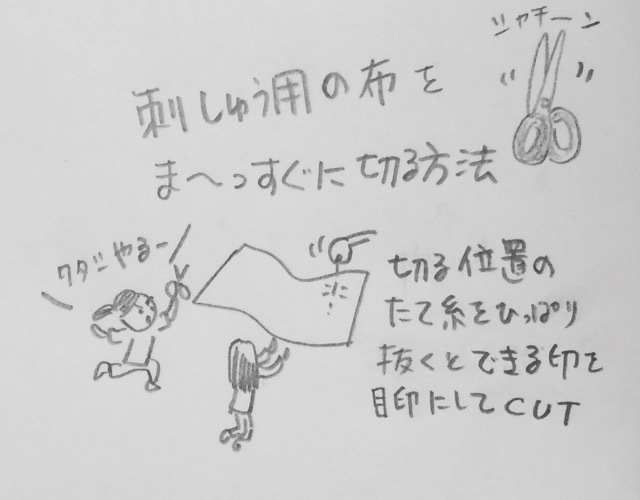 シャキーン
刺しゅう用の布を
ま〜っすぐに切る方法
ワタシやるー
切る位置の
たて糸をひっぱり
抜くとできる印を
目印にしてCUT